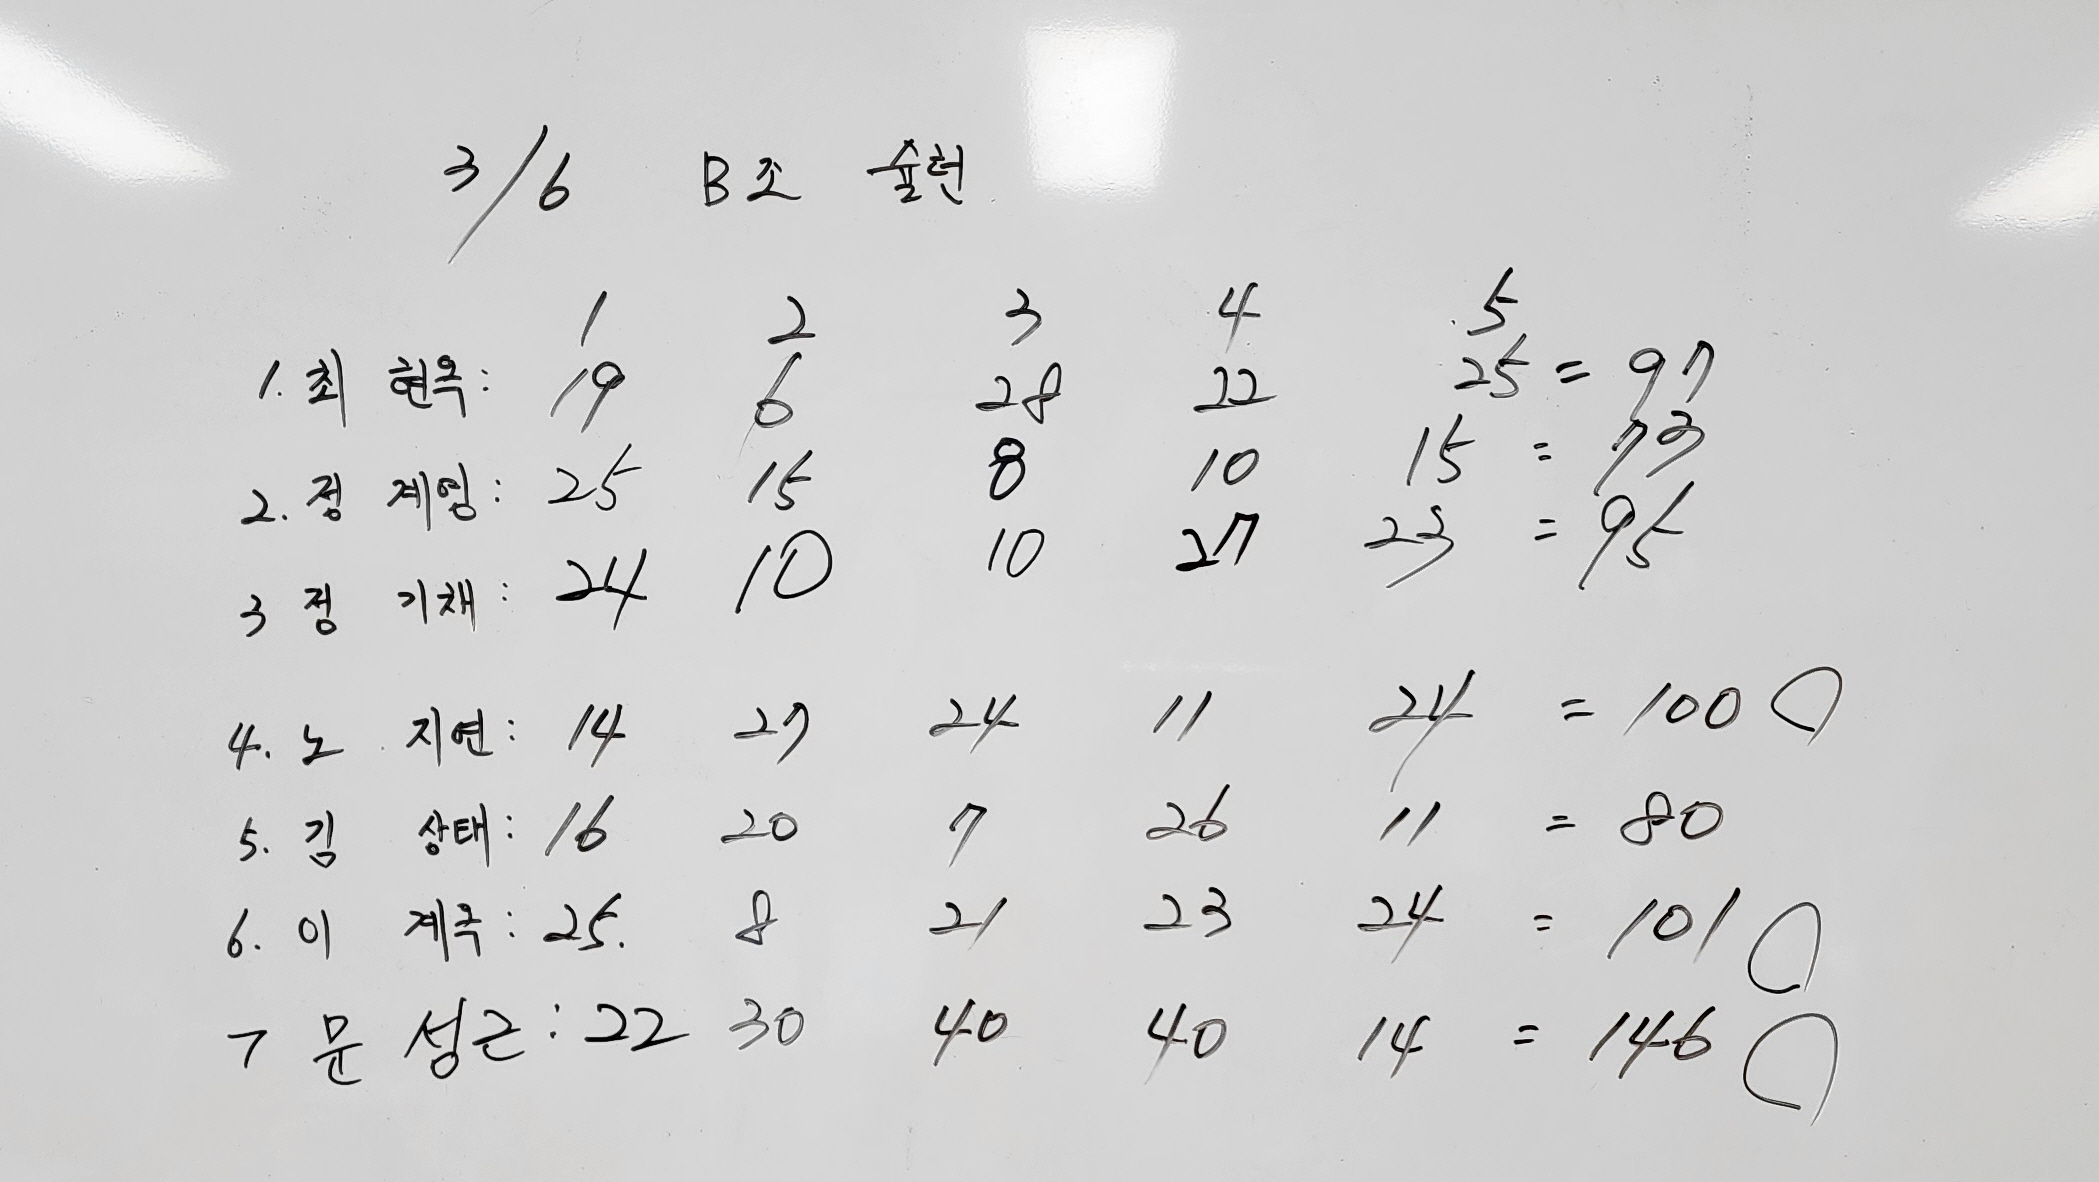 3/6 B조 슐런
1 2 3 4 5
1. 최 현옥: 19 6 28 22 25 = 97
2. 정 계엄: 25 15 8 10 15 = 73
3 정 기채: 24 10 10 27 23 = 95
4. 노 지연: 14 27 24 11 24 = 100
5. 김 상태: 16 20 7 26 11 = 80
6. 이 계옥: 25. 8 21 23 24 = 101
7 문 성근: 22 30 40 40 14 = 146